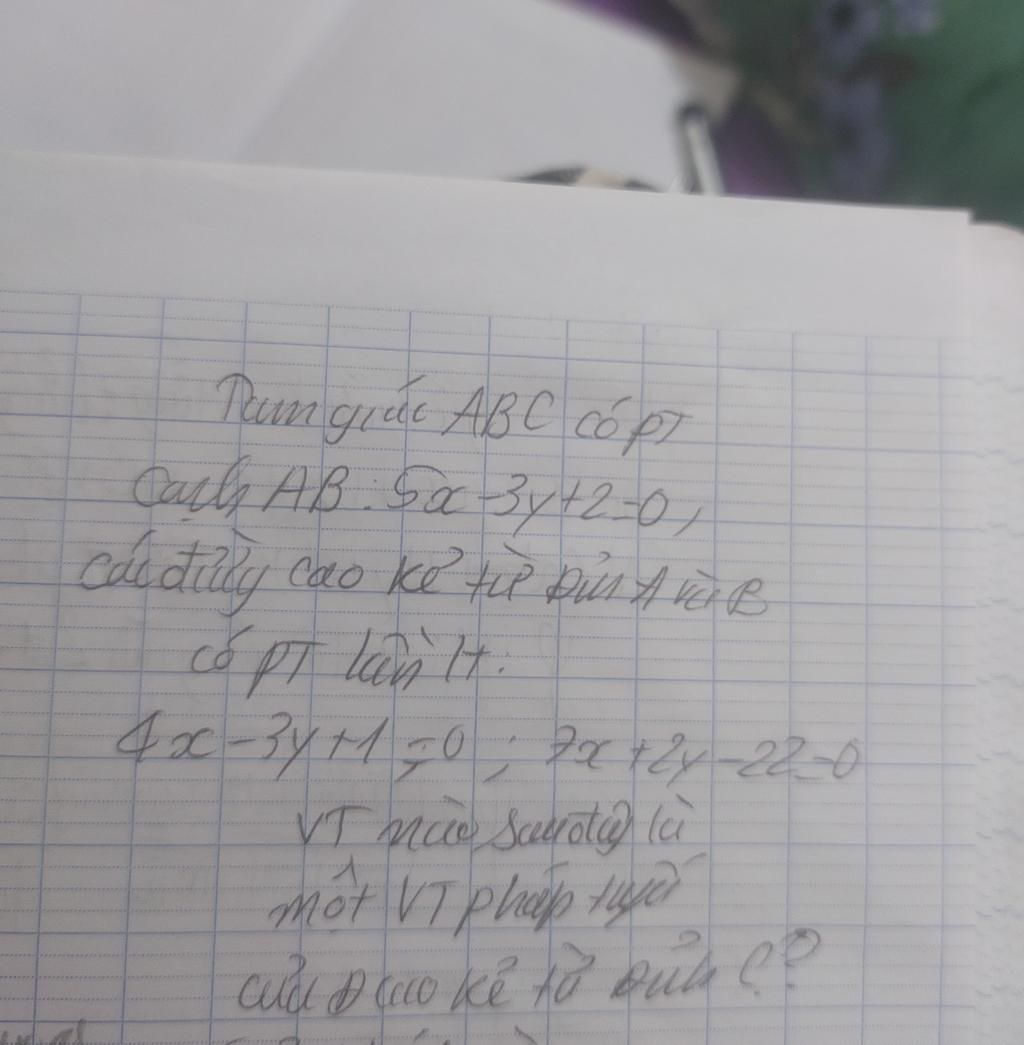 Tam giác ABC có PT
Cạnh AB: 5x - 3y + 2 = 0,
các đường cao kẻ từ Đỉnh A và B
có PT lần lt:
4x - 3y + 1 = 0 ; 7x + 2y - 22 = 0
VT nào sau đây là
một VT pháp tuyến
của Đ cao kẻ từ Đỉnh C?